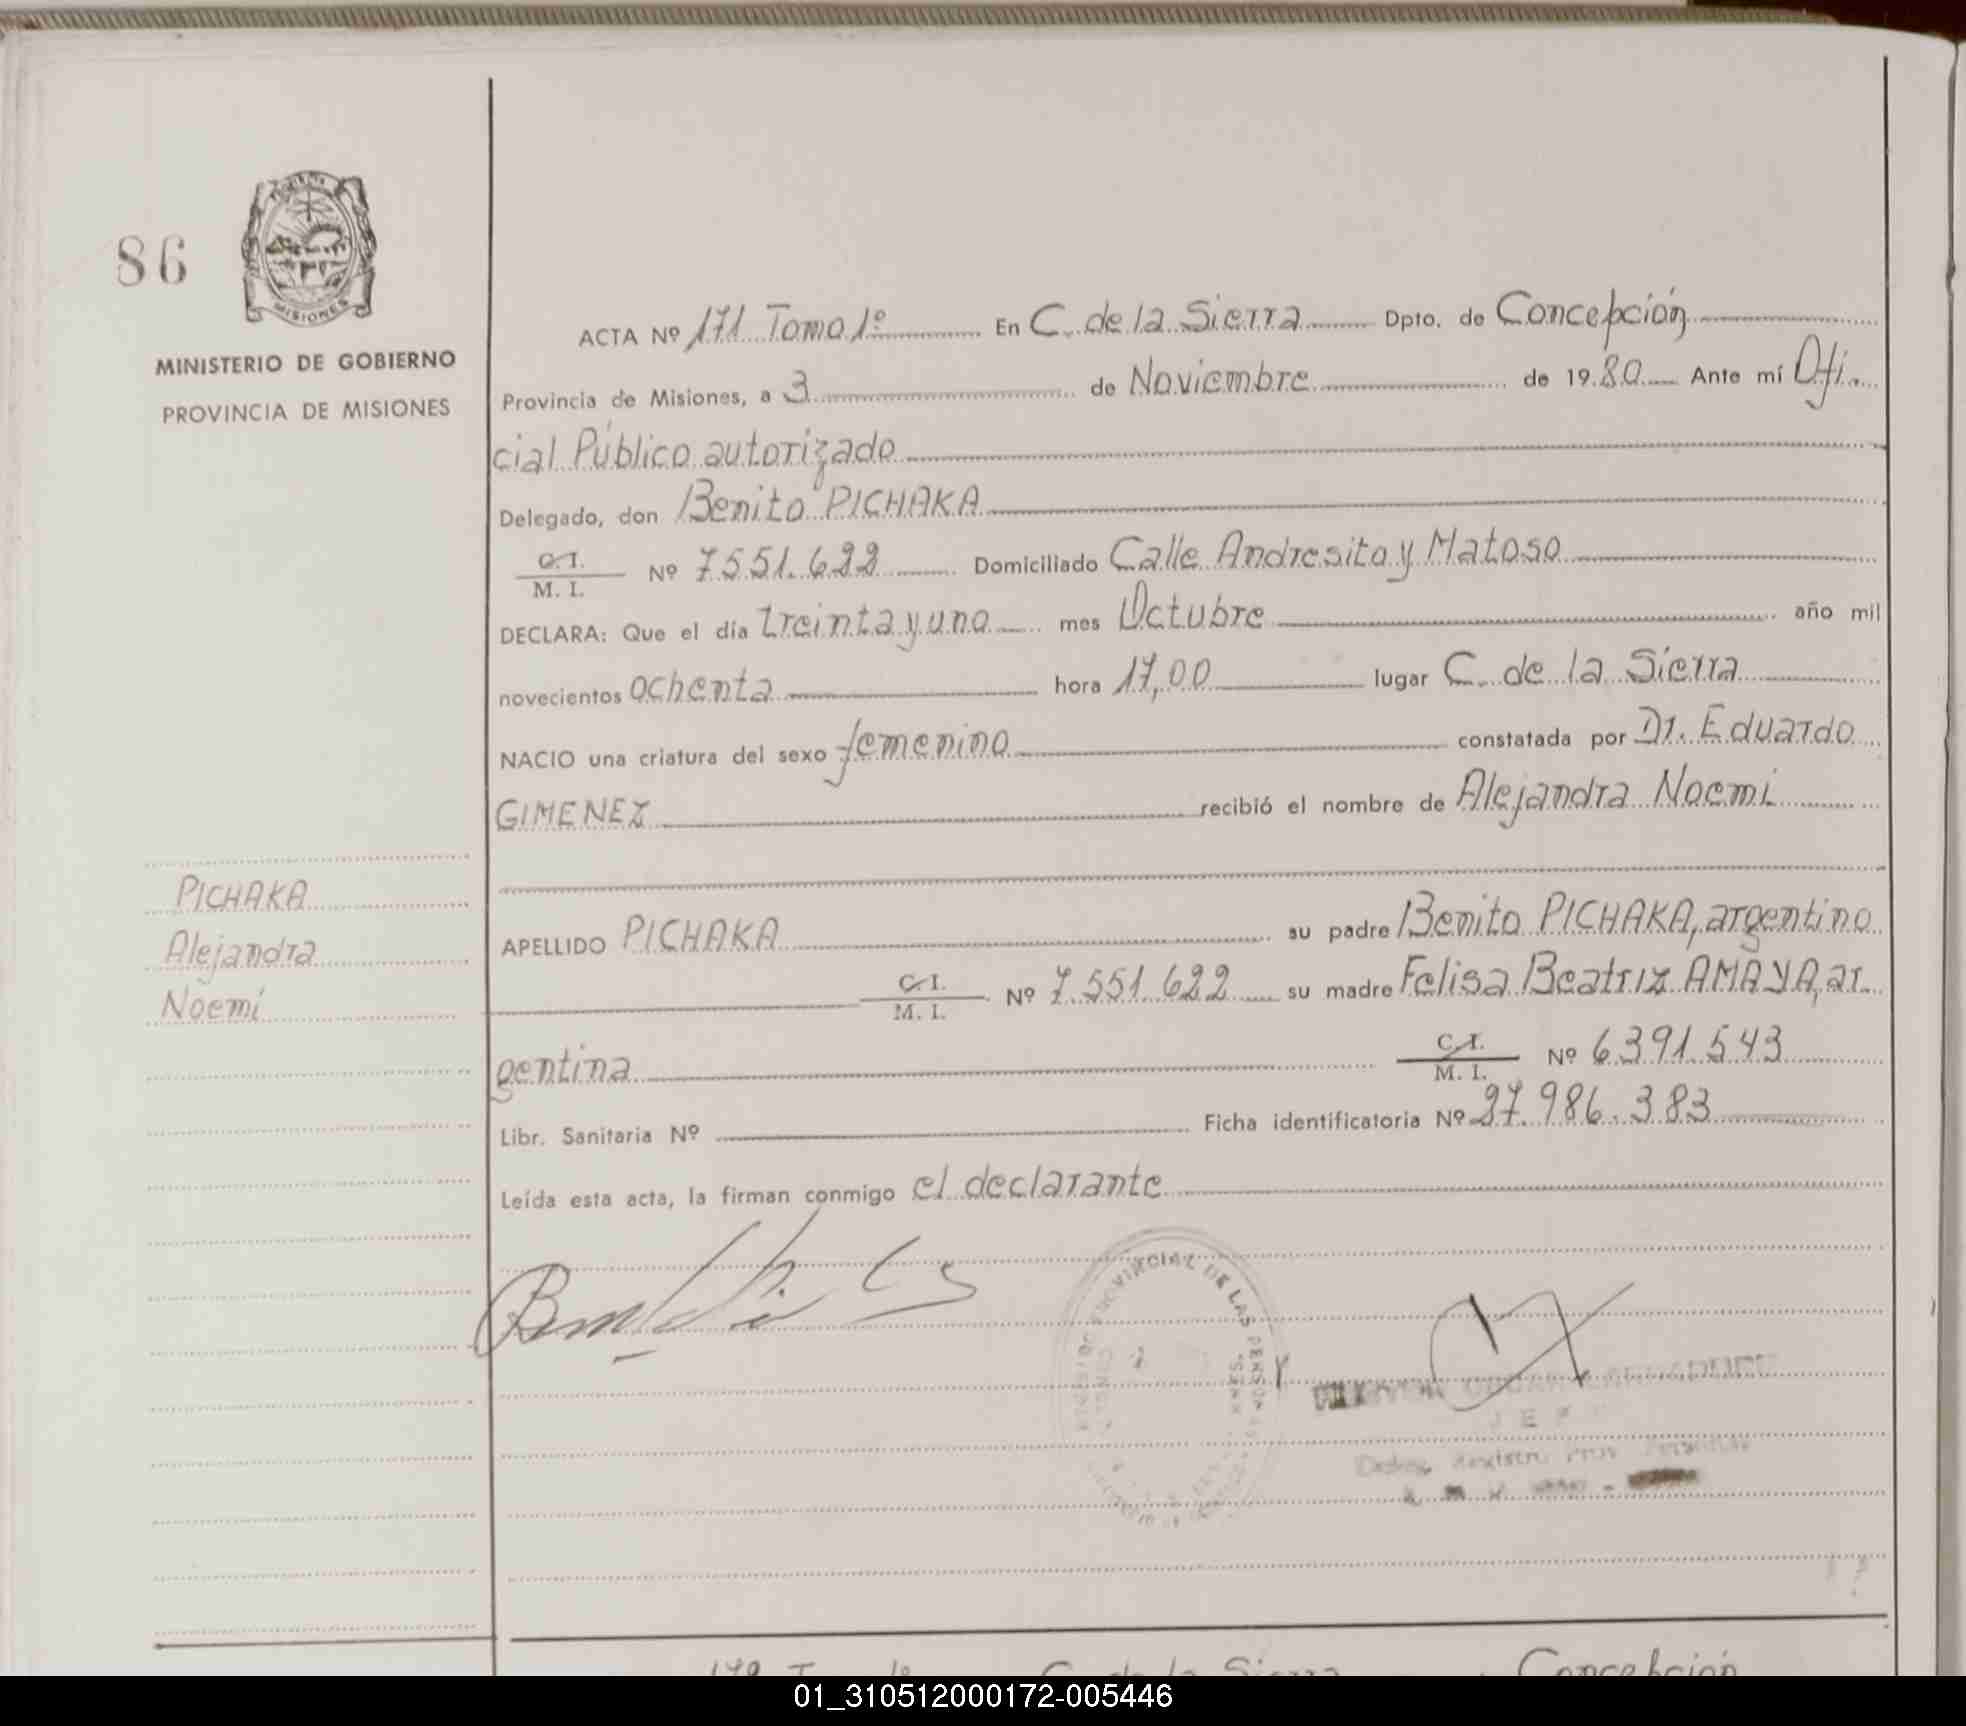 86
MISIONES
MINISTERIO DE GOBIERNO
PROVINCIA DE MISIONES
PICHAKA
Alejandra
Noemi
ACTA Nº 171 Tomo 1º En C. de la Sierra Dpto. de Concepción
Provincia de Misiones, a 3 de Noviembre de 1980 Ante mí Ofi.
cial Público autorizado
Delegado, don Benito PICHAKA
C. I.
M. I. Nº 7551.622 Domiciliado Calle Andresito y Matoso
DECLARA: Que el día treinta y uno mes Octubre año mil
novecientos ochenta hora 17,00 lugar C. de la Sierra
NACIO una criatura del sexo femenino constatada por Dr. Eduardo
GIMENEZ recibió el nombre de Alejandra Noemi
APELLIDO PICHAKA su padre Benito PICHAKA, argentino
C. I.
M. I. Nº 7.551.622 su madre Felisa Beatriz AMAYA, ar.
gentina C. I.
M. I. Nº 6.391.543
Libr. Sanitaria Nº Ficha identificatoria Nº 27.986.383
Leída esta acta, la firman conmigo el declarante
PROVINCIAL DE LAS PERSONAS
JEF
C. de la Sierra Concepción
01_310512000172-005446